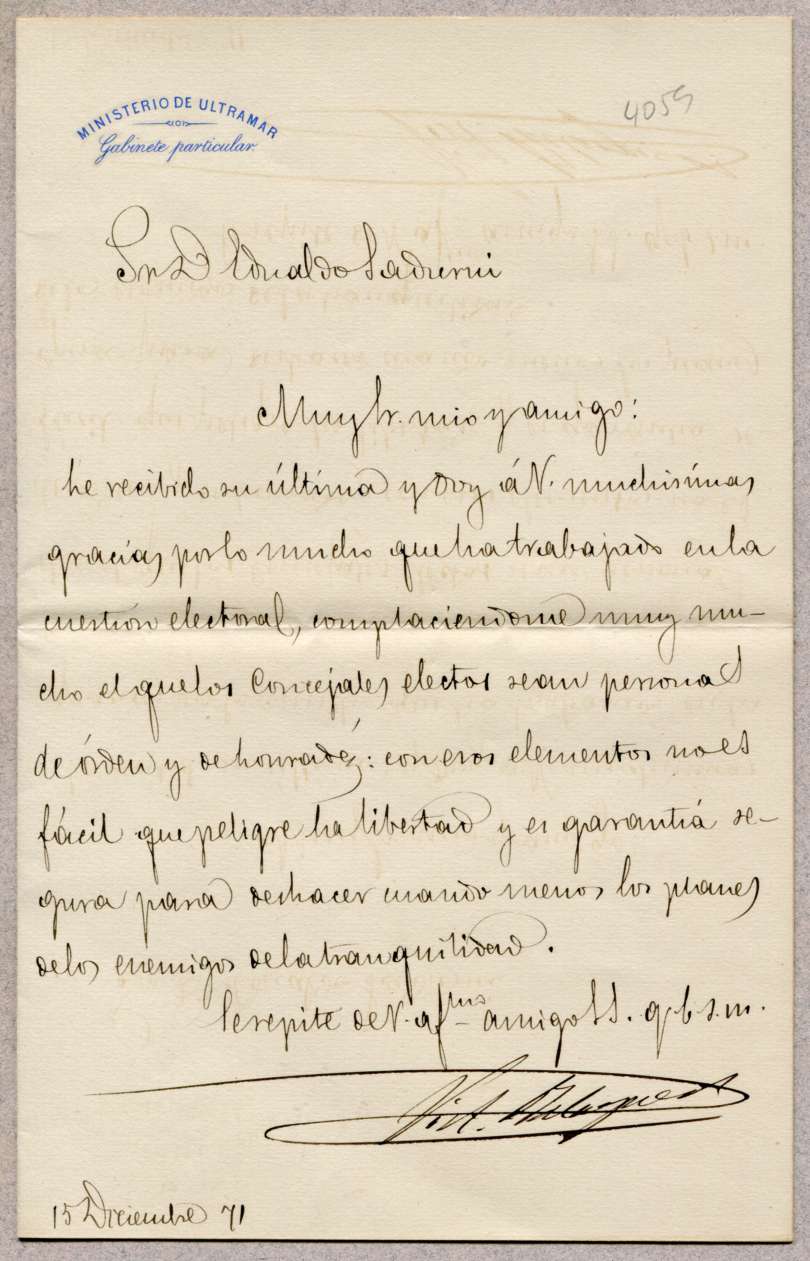 4059
MINISTERIO DE ULTRAMAR
Gabinete particular
Sr D Edualdo
Muy Sr. mio y amigo:
he recibido su última y doy á V. muchisimas
gracias por lo mucho que ha trabajado en la
cuestion electoral, complaciendome muy mu-
cho el que los Concejales electos sean personas
de órden y de honradéz: con esos elementos no es
fácil que peligre la libertad y es garantiá se-
gura para deshacer cuando menos los planes
de los enemigos de la tranquilidad.
Se repite de V. afmo amigo S S. q. b. s. m.
Vict. Balaguer
15 Diciembre 71